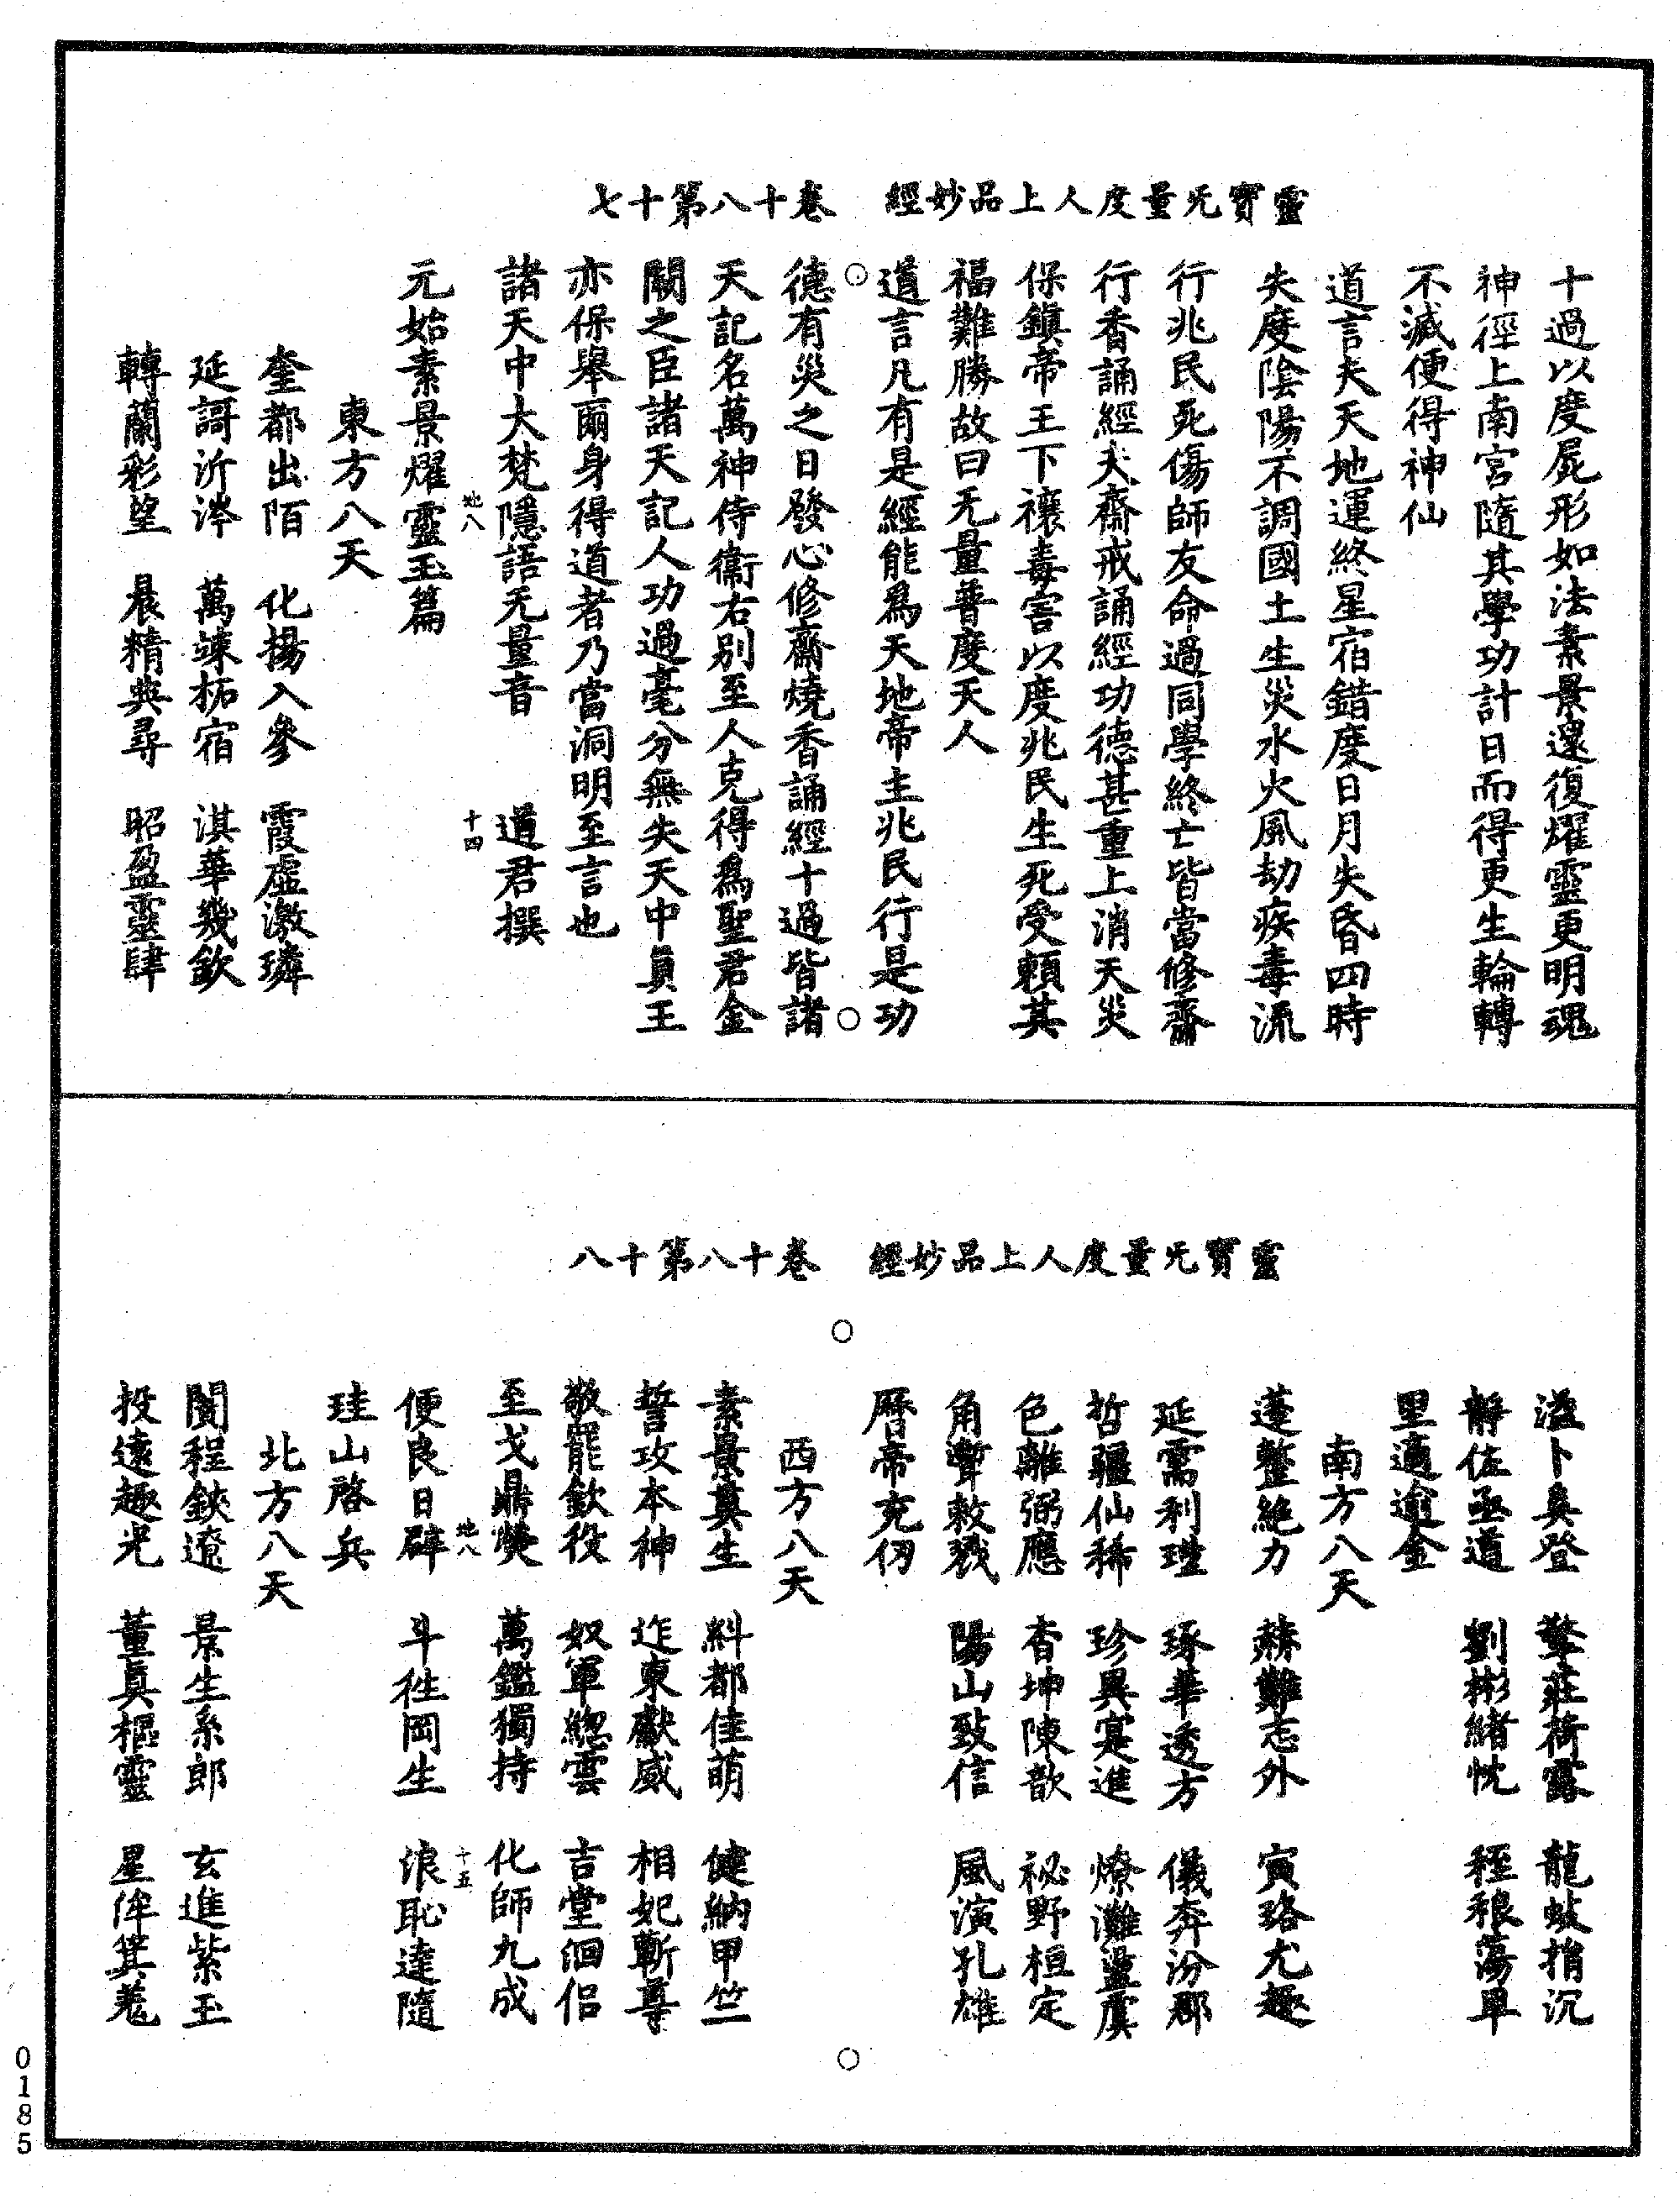 靈寶无量度人上品妙經　卷十八第十七
十過以度屍形如法素景還復燿靈更明魂
神徑上南宮隨其學功計日而得更生輪轉
不滅便得神仙
道言夫天地運終星宿錯度日月失昏四時
失度陰陽不調國土生災水火風劫疾毒流
行兆民死傷師友命過同學終亡皆當修齋
行香誦經夫齋戒誦經功德甚重上消天災
保鎮帝王下禳毒害以度兆民生死受賴其
福難勝故曰无量普度天人
道言凡有是經能為天地帝主兆民行是功
德有災之日發心修齋燒香誦經十過皆諸
天記名萬神侍衛右別至人克得為聖君金
闕之臣諸天記人功過毫分無失天中真王
亦保舉爾身得道者乃當洞明至言也
諸天中大梵隱語无量音　道君撰
地八　十四
元始素景燿靈玉篇
東方八天
奎都出陌　化揚入參　霞虛激璘
延謌沂涔　萬竦柘宿　淇華幾欽
轉蘭彩望　晨精典尋　昭盈靈肆
靈寶无量度人上品妙經　卷十八第十八
溢卜奐登　擎莊荷露　龍蛂捎沉
靜佐丞道　劉彬緒忱　秷稂蕩單
里適逾金
南方八天
蓬整絶力　難志外　寅珞尤趣
延需利　琢華透方　儀奔汾郡
哲疆仙稀　珍異寔進　燎灘盪虞
色離弼應　杳坤陳歆　祕野桓定
角聱敕　陽山致信　風演孔雄
曆帝充仞
西方八天
素景萁生　糾都佳萌　健納甲竺
誓攻本神　迮東獻威　相妃斬尋
敬罷欽役　奴軍緫雲　吉堂佪侶
至戈鼎爕　萬鑑獨持　化師九成
地八　十五
便良日辟　斗徃岡生　浪恥達隨
珪山啓兵
北方八天
閿程鋏遼　景生系郎　玄進紫玉
投遠趣光　董真樞靈　星侔箕
0185